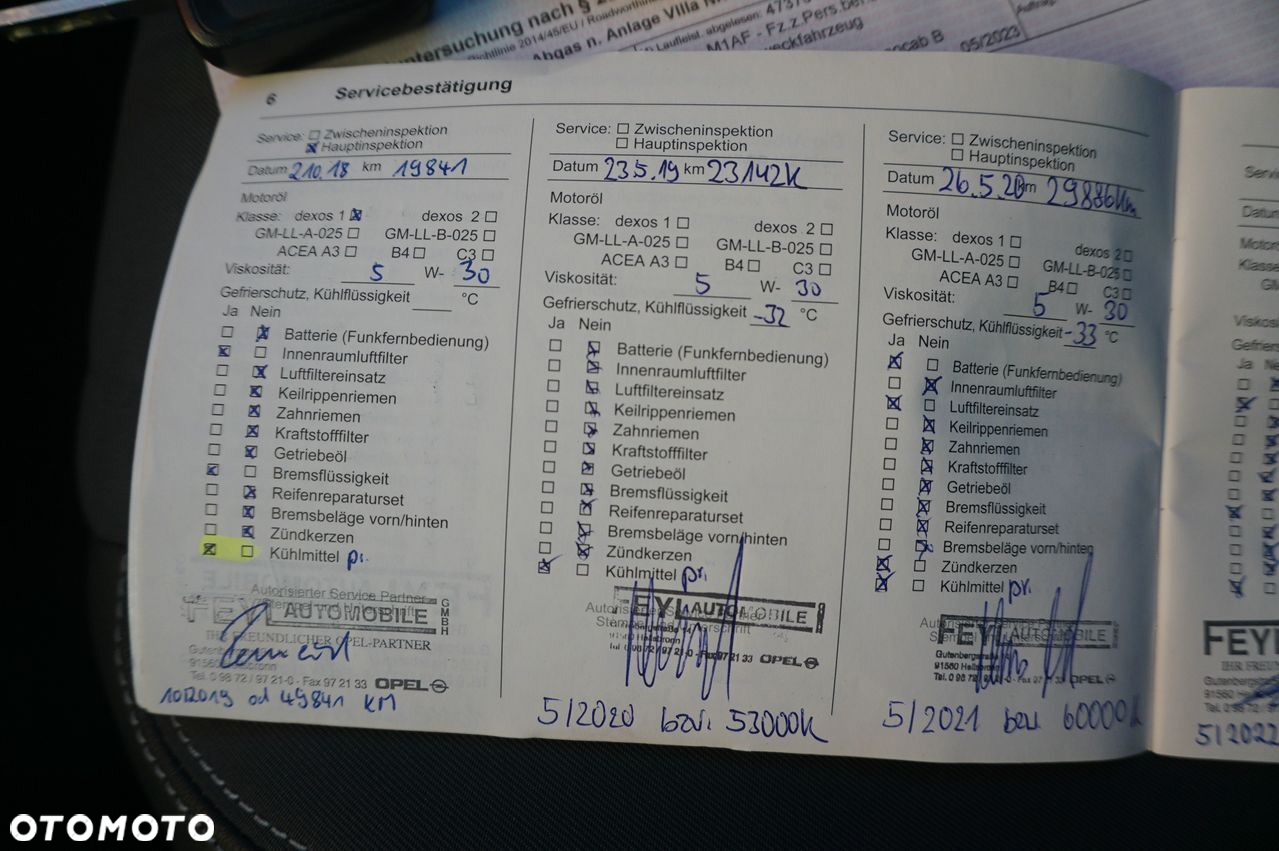 untersuchung nach §
Richtlinie 2014/45/EU / Roadworthin
Abgas n. Anlage VIIIa N
n Laufleist. abgelesen: 4737
M1AF - Fz.z.Pers.be
eckfahrzeug
ocab B
05/2023
6 Servicebestätigung
Service: Zwischeninspektion
Hauptinspektion
Datum 2.10.18 km 19841
Motoröl
Klasse: dexos 1 dexos 2
GM-LL-A-025 GM-LL-B-025
ACEA A3 B4 C3
Viskosität: 5 W- 30
Gefrierschutz, Kühlflüssigkeit °C
Ja Nein
Batterie (Funkfernbedienung)
Innenraumluftfilter
Luftfiltereinsatz
Keilrippenriemen
Zahnriemen
Kraftstofffilter
Getriebeöl
Bremsflüssigkeit
Reifenreparaturset
Bremsbeläge vorn/hinten
Zündkerzen
Kühlmittel pr.
Autorisierter Service Partner
FEYL AUTOMOBILE GMBH
IHR FREUNDLICHER OPEL-PARTNER
Gutenbergstraße
91560 Heilsbronn
Tel. 0 98 72 / 97 21-0 - Fax 97 21 33 OPEL
10/2019 od 49841 KM
Service: Zwischeninspektion
Hauptinspektion
Datum 23.5.19 km 23142K
Motoröl
Klasse: dexos 1 dexos 2
GM-LL-A-025 GM-LL-B-025
ACEA A3 B4 C3
Viskosität: 5 W- 30
Gefrierschutz, Kühlflüssigkeit -32 °C
Ja Nein
Batterie (Funkfernbedienung)
Innenraumluftfilter
Luftfiltereinsatz
Keilrippenriemen
Zahnriemen
Kraftstofffilter
Getriebeöl
Bremsflüssigkeit
Reifenreparaturset
Bremsbeläge vorn/hinten
Zündkerzen
Kühlmittel pr.
FEYL AUTOMOBILE
91560 Heilsbronn
Tel. 0 98 72 / 97 21-0 - Fax 97 21 33 OPEL
5/2020 bzw. 53000K
Service: Zwischeninspektion
Hauptinspektion
Datum 26.5.20 km 29886Km
Motoröl
Klasse: dexos 1 dexos 2
GM-LL-A-025 GM-LL-B-025
ACEA A3 B4 C3
Viskosität: 5 W- 30
Gefrierschutz, Kühlflüssigkeit -33 °C
Ja Nein
Batterie (Funkfernbedienung)
Innenraumluftfilter
Luftfiltereinsatz
Keilrippenriemen
Zahnriemen
Kraftstofffilter
Getriebeöl
Bremsflüssigkeit
Reifenreparaturset
Bremsbeläge vorn/hinten
Zündkerzen
Kühlmittel pr.
FEYL AUTOMOBILE
Gutenbergstraße
91560 Heilsbronn
Tel. 0 98 72 / 97 21-0 - Fax 97 21 33 OPEL
5/2021 bzw 60000K
Servi
Datum
Motor
Klasse
Visko
Gefrie
Ja Ne
FEYL
IHR FREUN
Gutenbergst
91560 Heils
Tel. 0 98 72
5/2022
OTOMOTO